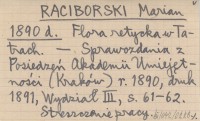 RACIBORSKI Marian
1890 d. Flora retycka w Ta-
trach. — Sprawozdania z
Posiedzeń Akademii Umiejęt-
ności (Kraków) r. 1890, druk
1891, Wydział III, s. 61-62.
Streszczenie pracy.